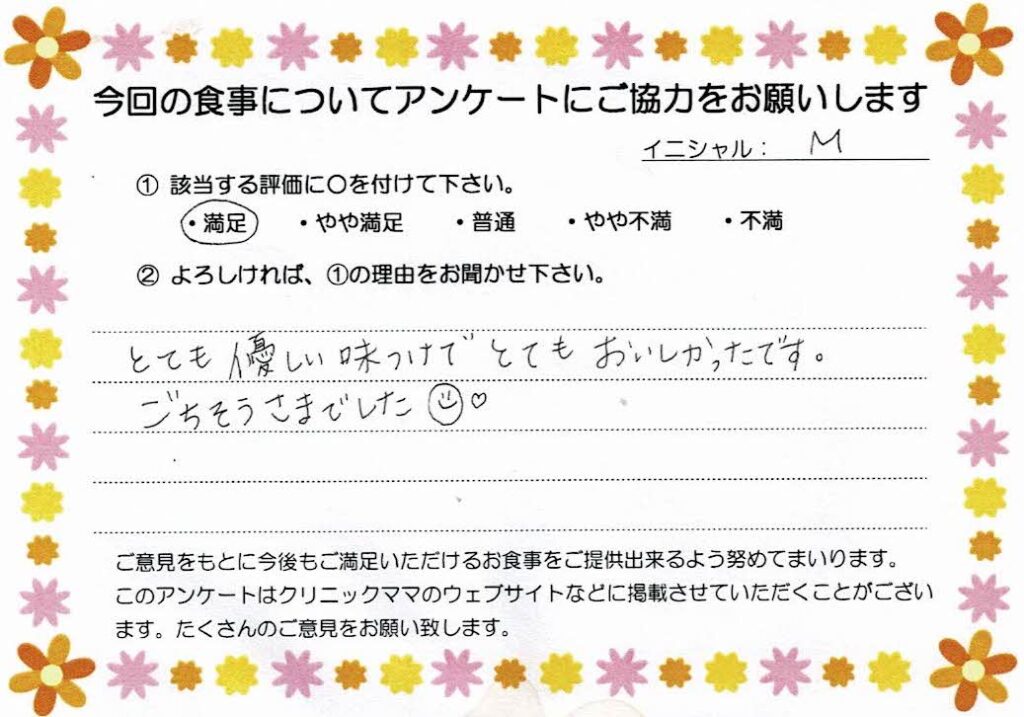 今回の食事についてアンケートにご協力をお願いします
イニシャル： M
① 該当する評価に〇を付けて下さい。
・満足 ・やや満足 ・普通 ・やや不満 ・不満
② よろしければ、①の理由をお聞かせ下さい。
とても優しい味つけでとてもおいしかったです。
ごちそうさまでした☺♡
ご意見をもとに今後もご満足いただけるお食事をご提供出来るよう努めてまいります。
このアンケートはクリニックママのウェブサイトなどに掲載させていただくことがござい
ます。たくさんのご意見をお願い致します。